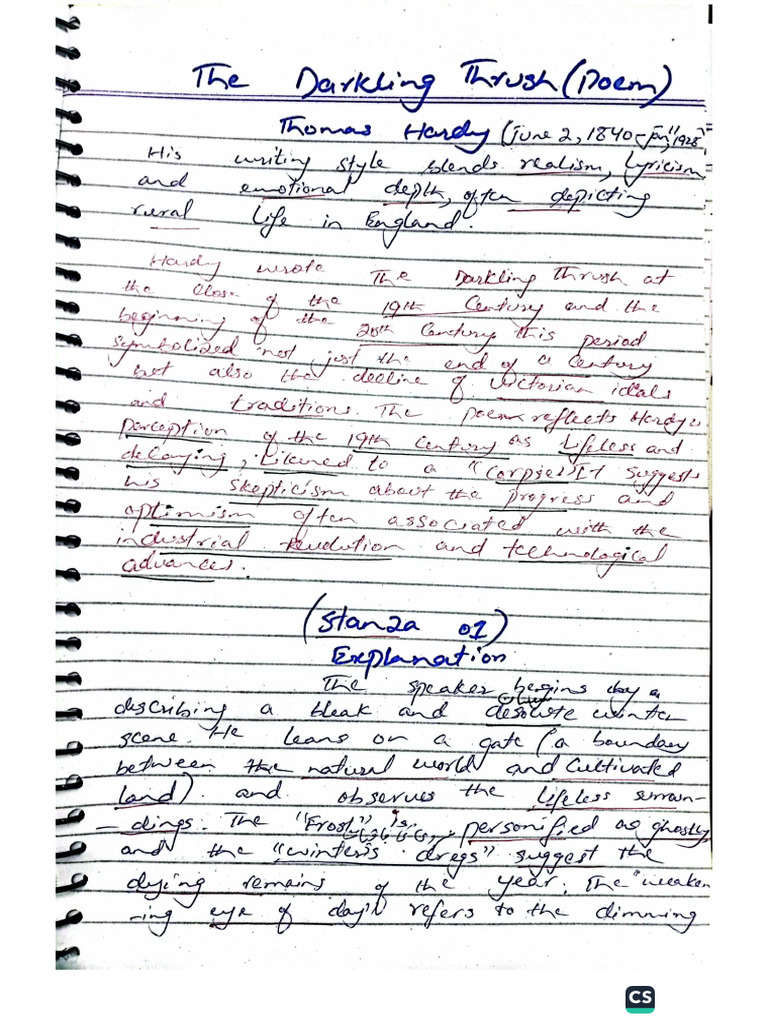 The Darkling Thrush (Poem)
Thomas Hardy (june 2, 1840-jan 11, 1928)
His writing style blends realism, lyricism
and emotional depth, often depicting
rural life in England.
Hardy wrote The Darkling Thrush at
the close of the 19th Century and the
beginning of the 20th Century. this period
symbolized not just the end of a century
but also the decline of victorian ideals
and traditions. The poem reflects Hardy's
perception of the 19th Century as lifeless and
decaying, likened to a "corpse". It suggests
his skepticism about the progress and
optimism often associated with the
industrial revolution and technological
advances.
(Stanza 01)
Explanation
The speaker begins by a
describing a bleak and desolate winter
scene. He leans on a gate (a boundary
between the natural world and cultivated
land) and observes the lifeless surroun-
-dings. The "Frost" is personified as ghostly,
and the "winter's dregs" suggest the
dying remains of the year. The "weaken
-ing eye of day" refers to the dimming
CS